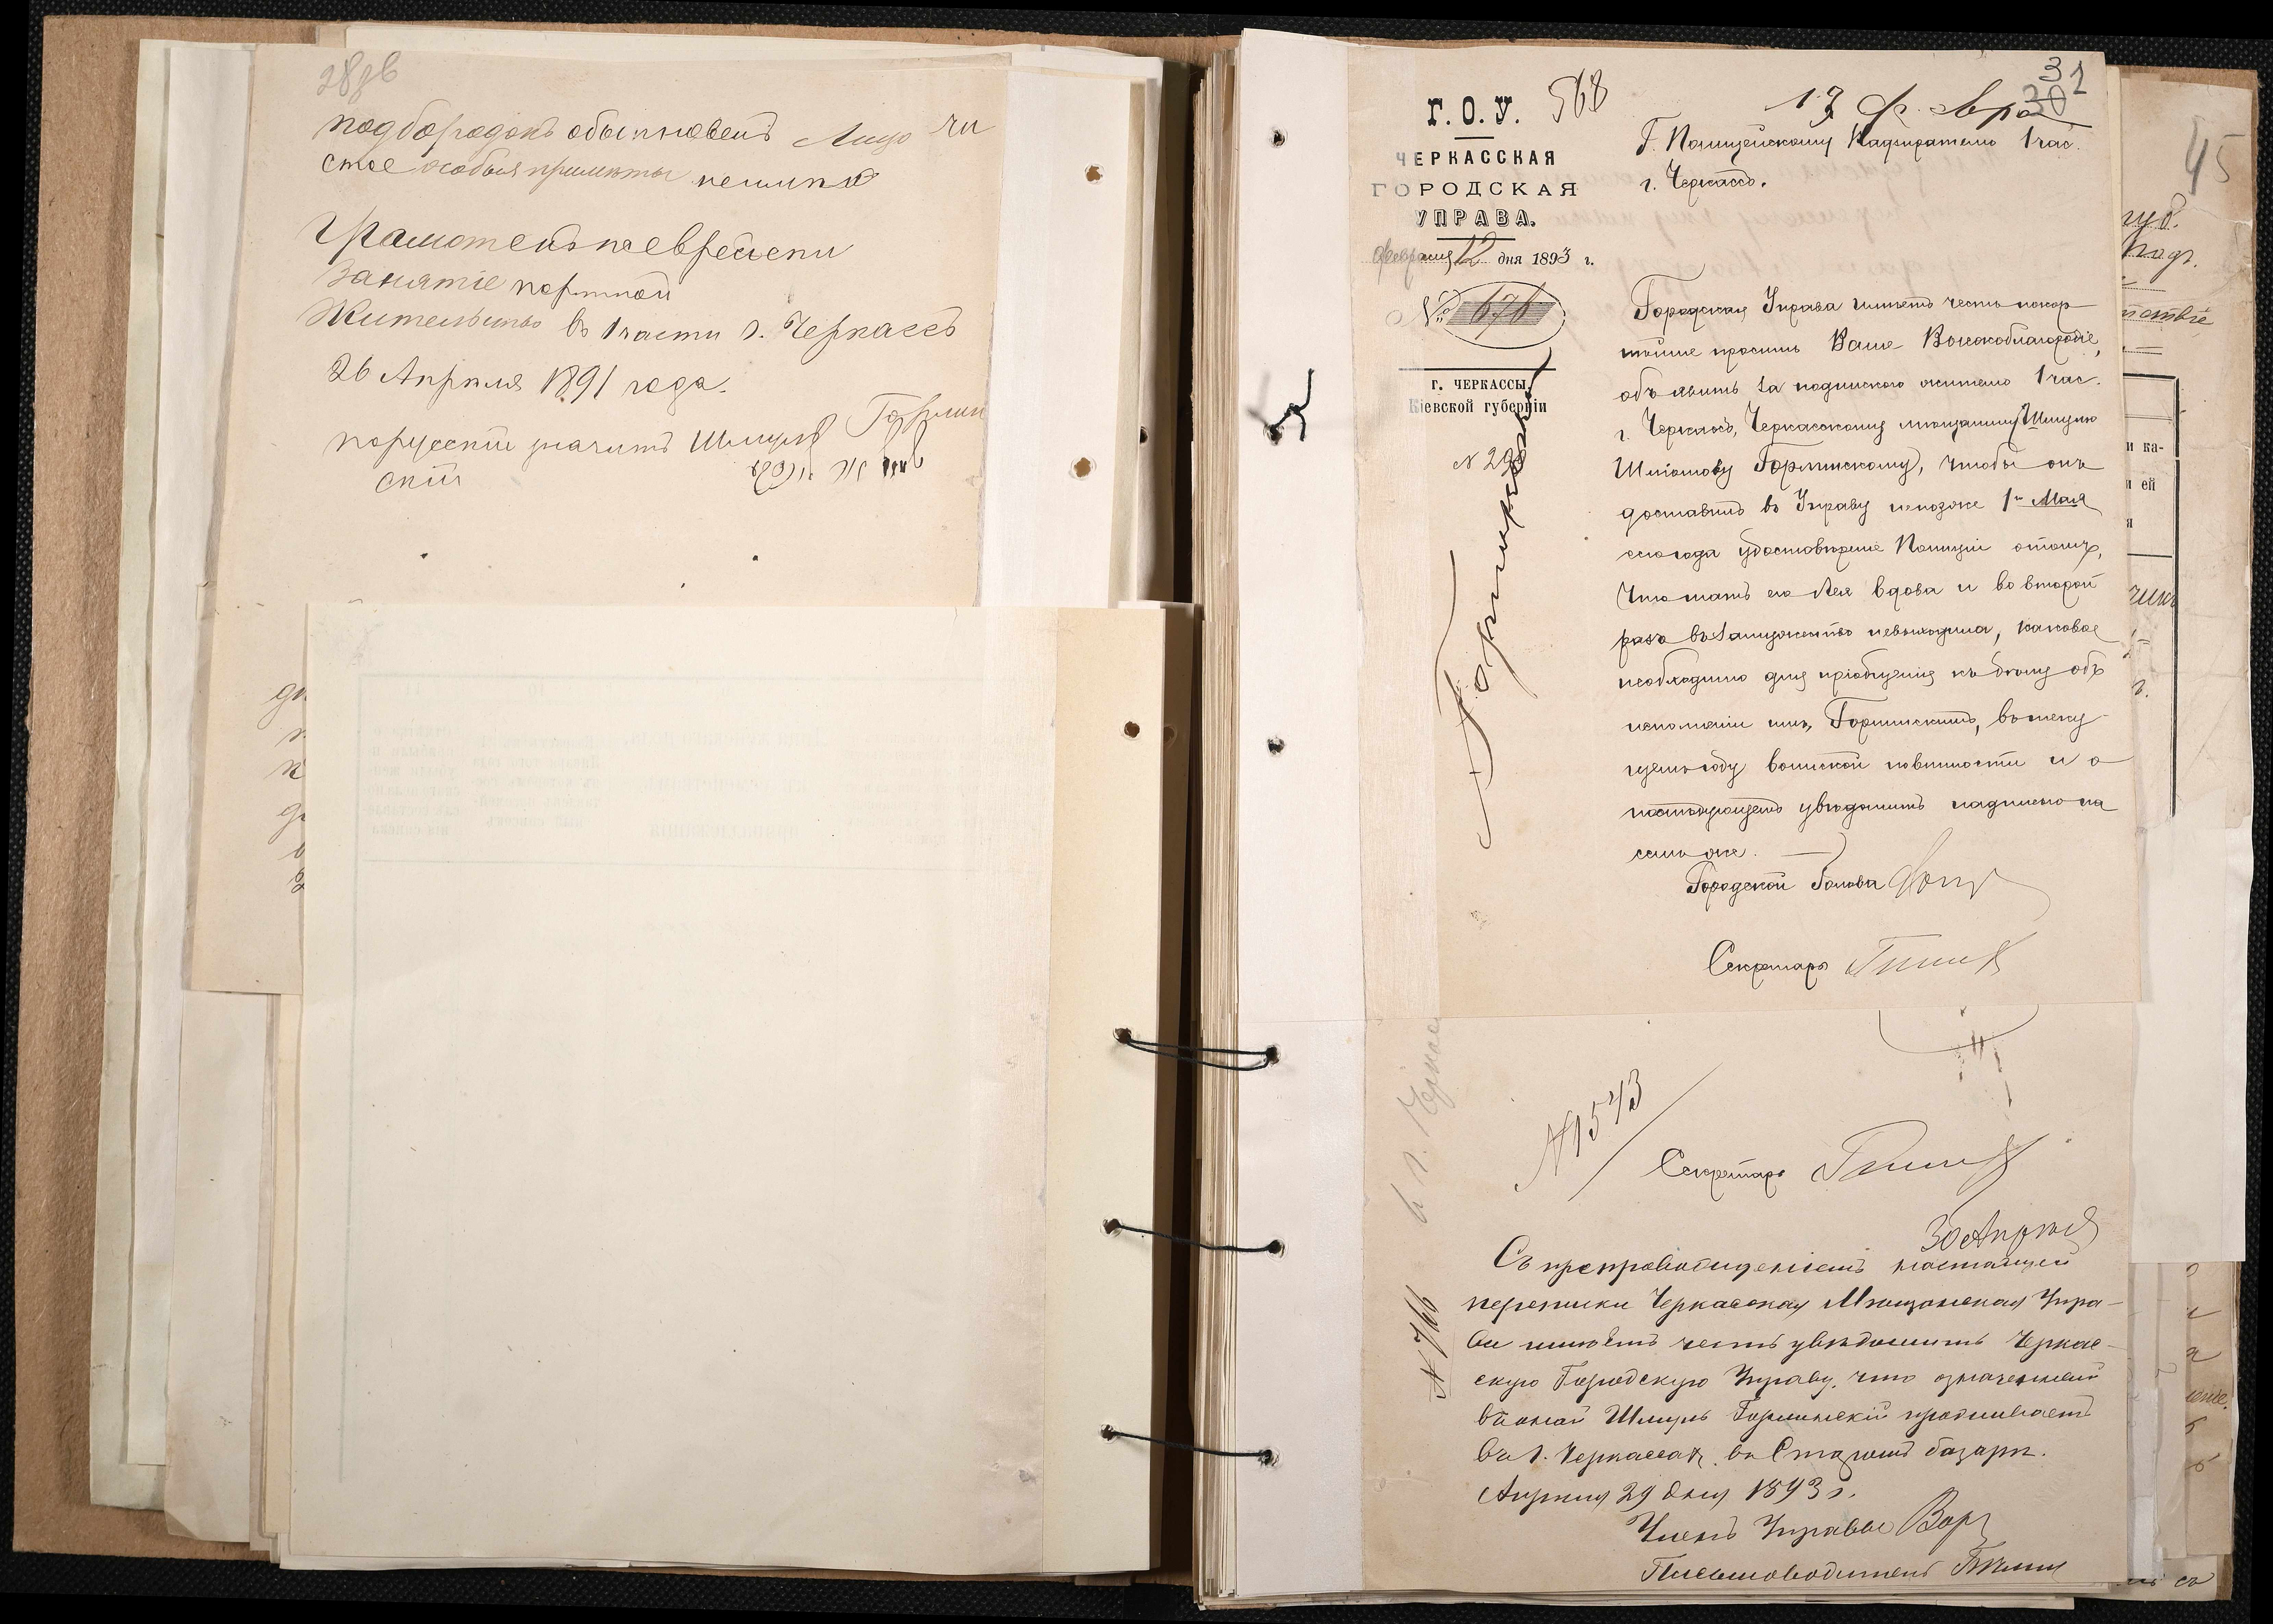 28об
подбородокъ обыкновенъ Лицо чи
стое особыя примѣты неимѣе
Грамотенъ поеврейски
Занятіе портной
Жительство въ 1 части г. Черкассъ
26 Апрѣля 1891 года.
порусски значитъ Шмуль Гормин
скій
31
30
Г.О.У. 568
13 Февра
ЧЕРКАССКАЯ
ГОРОДСКАЯ
УПРАВА.
Февраля 12 дня 1893 г.
№ 676
г. ЧЕРКАССЫ,
Кіевской губерніи
Горминскій
Г. Полицейскому Надзирателю 1 час.
г. Черкассъ.
Городская Управа имѣетъ честь покор
нѣйше просить Ваше Высокоблагородіе,
объявить за подпискою жителю 1 час.
г. Черкассъ, Черкасскому мѣщанину Шмулю
Шліомову Горминскому, чтобы онъ
доставилъ въ Управу непозже 1го Мая
сего года удостовѣреніе Полиціи о томъ,
что мать его Лея вдова и во второй
разъ въ замужество невыходила, каковое
необходимо для пріобщенія къ дѣлу объ
исполненіи имъ, Горминскимъ, въ теку
щемъ году воинской повинности и о
послѣдующемъ увѣдомить надписью на
семъ же.
Городской Голова
Секретарь
№ 1543
Секретарь
30 Апрѣля
Съ препровожденіемъ настоящей
переписки Черкасская Мѣщанская Упра-
ва имѣетъ честь увѣдомить Черкас-
скую Городскую Управу, что означенный
въ оной Шмуль Горминскій проживаетъ
въ г. Черкассахъ, въ Старомъ базарѣ.
Апрѣля 29 дня 1893 г.
№ 766
Членъ Управы
Письмоводитель
45